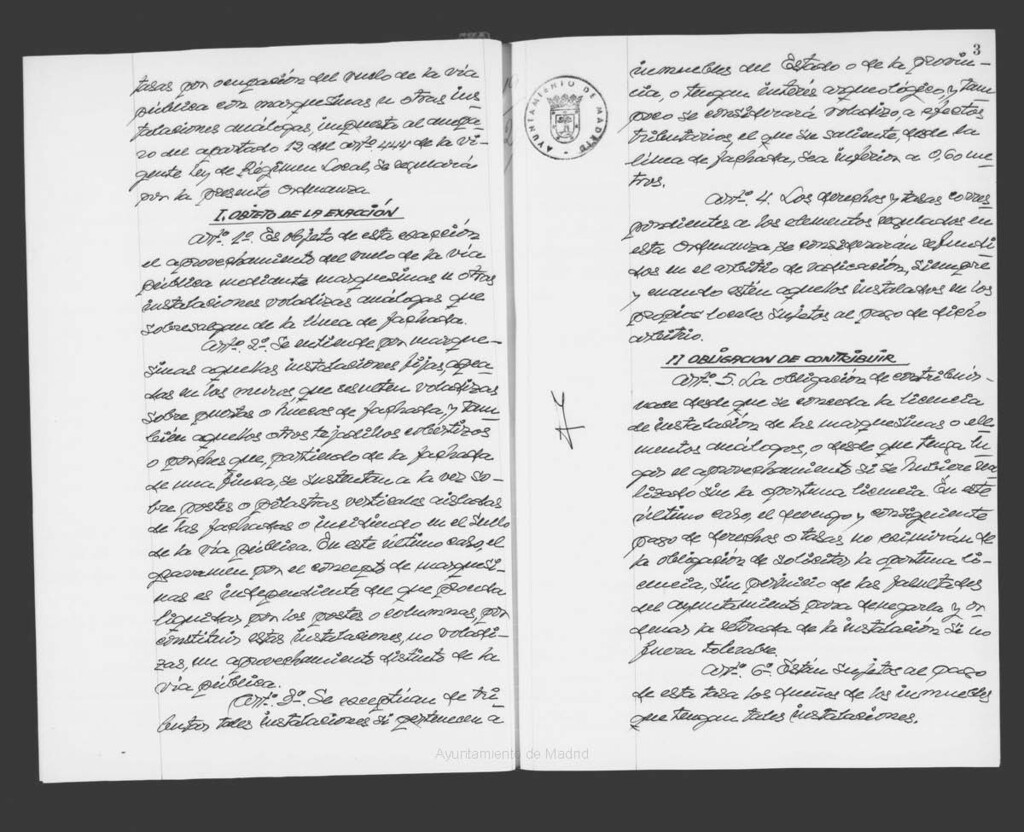 tasas por ocupación del vuelo de la vía
pública con marquesinas u otras ins-
talaciones análogas, impuesto al ampa-
ro del apartado 12 del artº 444 de la vi-
gente Ley de Régimen Local, se regulará
por la presente Ordenanza.
I. OBJETO DE LA EXACCIÓN
Artº. 1º. Es objeto de esta exacción
el aprovechamiento del vuelo de la vía
pública mediante marquesinas u otras
instalaciones voladizas análogas que
sobresalgan de la línea de fachada.
Artº. 2º. Se entiende por marque-
sinas aquellas instalaciones fijas, apea-
das en los muros, que resulten voladizas
sobre puertas o huecos de fachada, y tam-
bién aquellos otros tejadillos cobertizos
o porches que, partiendo de la fachada
de una finca, se sustentan a la vez so-
bre postes o pilastras verticales aisladas
de las fachadas o incidiendo en el suelo
de la vía pública. En este último caso, el
gravamen por el concepto de marquesi-
nas es independiente del que proceda
liquidar por los postes o columnas, por
constituir estas instalaciones, no voladi-
zas, un aprovechamiento distinto de la
vía pública.
Artº. 3º. Se exceptúan de tri-
butar tales instalaciones si pertenecen a
3
AYUNTAMIENTO DE MADRID
inmuebles del Estado o de la provin-
cia, o tengan interés arqueológico, y tam
poco se considerará voladizo, a efectos
tributarios, el que su saliente, desde la
línea de fachada, sea inferior a 0,60 me-
tros.
Artº. 4. Los derechos y tasas corres
pondientes a los elementos regulados en
esta Ordenanza se considerarán refundi-
dos en el arbitrio de radicación, siempre
y cuando estén aquellos instalados en los
propios locales sujetos al pago de dicho
arbitrio.
II OBLIGACION DE CONTRIBUIR
Artº. 5. La obligación de contribuir
nace desde que se conceda la licencia
de instalación de las marquesinas o ele-
mentos análogos, o desde que tenga lu-
gar el aprovechamiento si se hubiere rea
lizado sin la oportuna licencia. En este
último caso, el devengo y consiguiente
pago de derechos o tasas no eximirán de
la obligación de solicitar la oportuna li-
cencia, sin perjuicio de las facultades
del Ayuntamiento para denegarla y or-
denar la retirada de la instalación si no
fuera tolerable.
Artº. 6º. Están sujetos al pago
de esta tasa los dueños de los inmuebles
que tengan tales instalaciones.
Ayuntamiento de Madrid